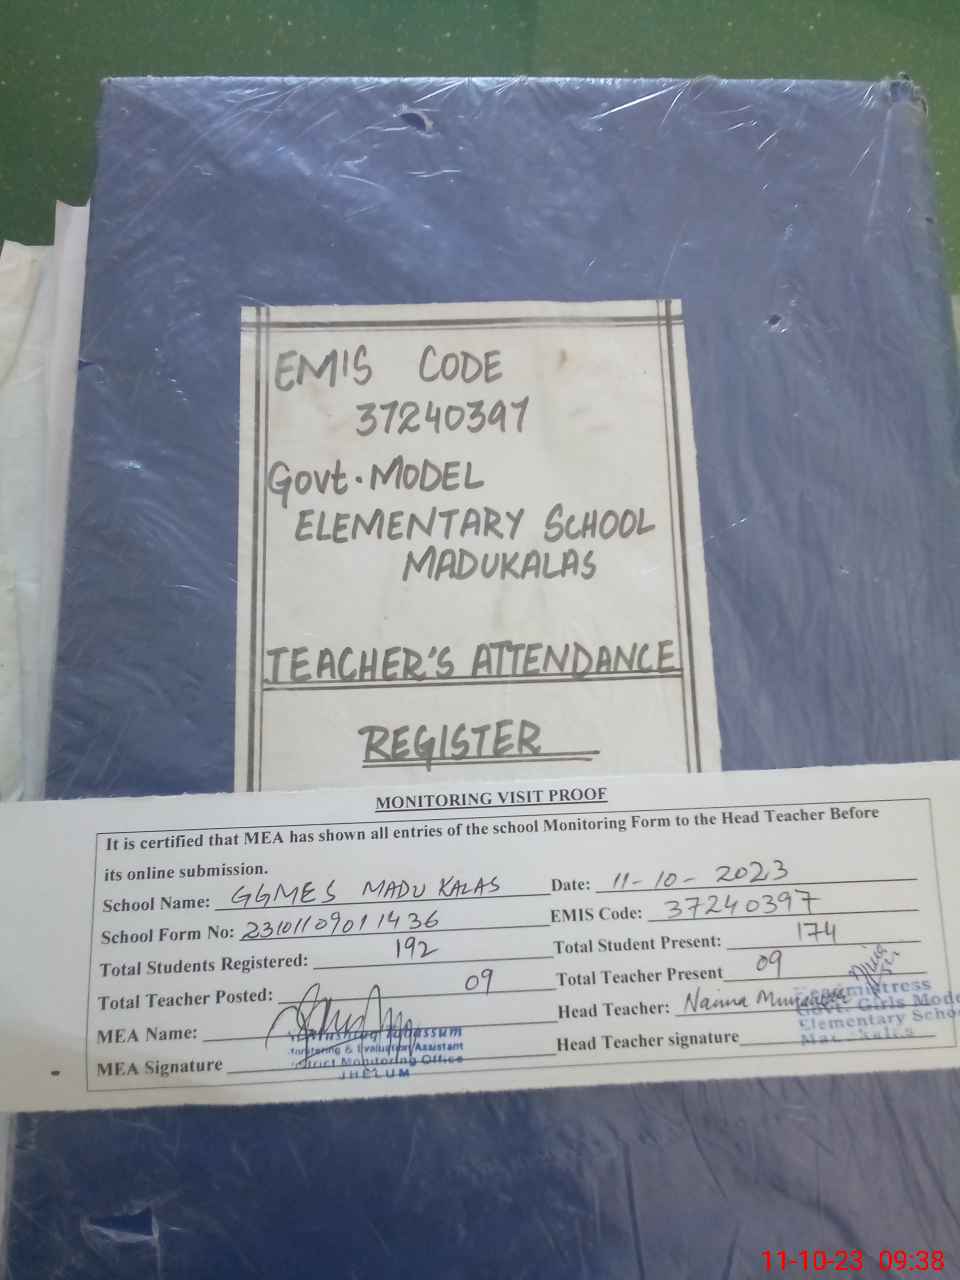 EMIS CODE
37240397
Govt. MODEL
ELEMENTARY SCHOOL
MADUKALAS
TEACHER'S ATTENDANCE
REGISTER
MONITORING VISIT PROOF
It is certified that MEA has shown all entries of the school Monitoring Form to the Head Teacher Before
its online submission.
School Name: GGMES MADU KALAS Date: 11-10-2023
School Form No: 23101109011436 EMIS Code: 37240397
Total Students Registered: 192 Total Student Present: 174
Total Teacher Posted: 09 Total Teacher Present 09
MEA Name: Head Teacher: Naima
MEA Signature Head Teacher signature
Monitoring & Evaluation Assistant
District Monitoring Office
JHELUM
Headmistress
Govt. Girls Mode
Elementary Scho
11-10-23 09:38